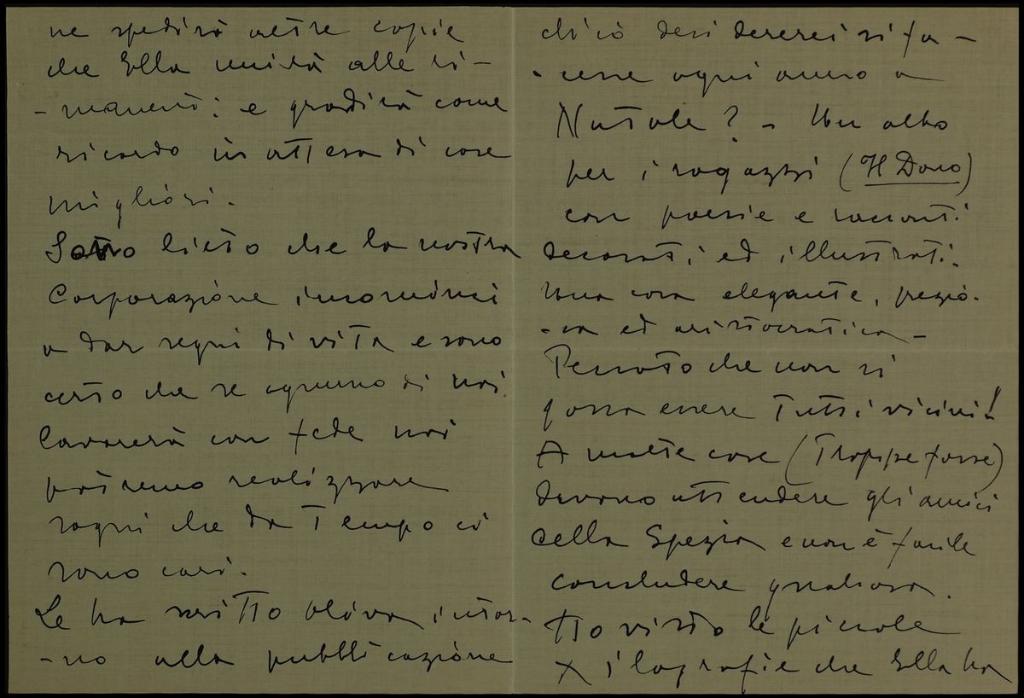 ne spedirò altre copie
che Ella unirà alle ri-
-manenti: e gradirà come
ricordo in attesa di cose
migliori.
Sono lieto che la nostra
Corporazione incominci
a dar segni di vita e sono
certo che se ognuno di noi
lavorerà con fede noi
potremo realizzare
sogni che da tempo ci
sono cari.
Le ha scritto Oliva, intor-
-no alla pubblicazione
ch'io desidererei si fa-
-cesse ogni anno a
Natale? - Un albo
per i ragazzi (Il Dono)
con poesie e racconti
decorati ed illustrati.
Una cosa elegante, prezio-
-sa ed aristocratica -
Peccato che non si
possa essere tutti vicini!
A molte cose (troppe forse)
devono attendere gli amici
della Spezia e non è facile
concludere qualcosa.
Ho visto le piccole
xilografie che Ella ha